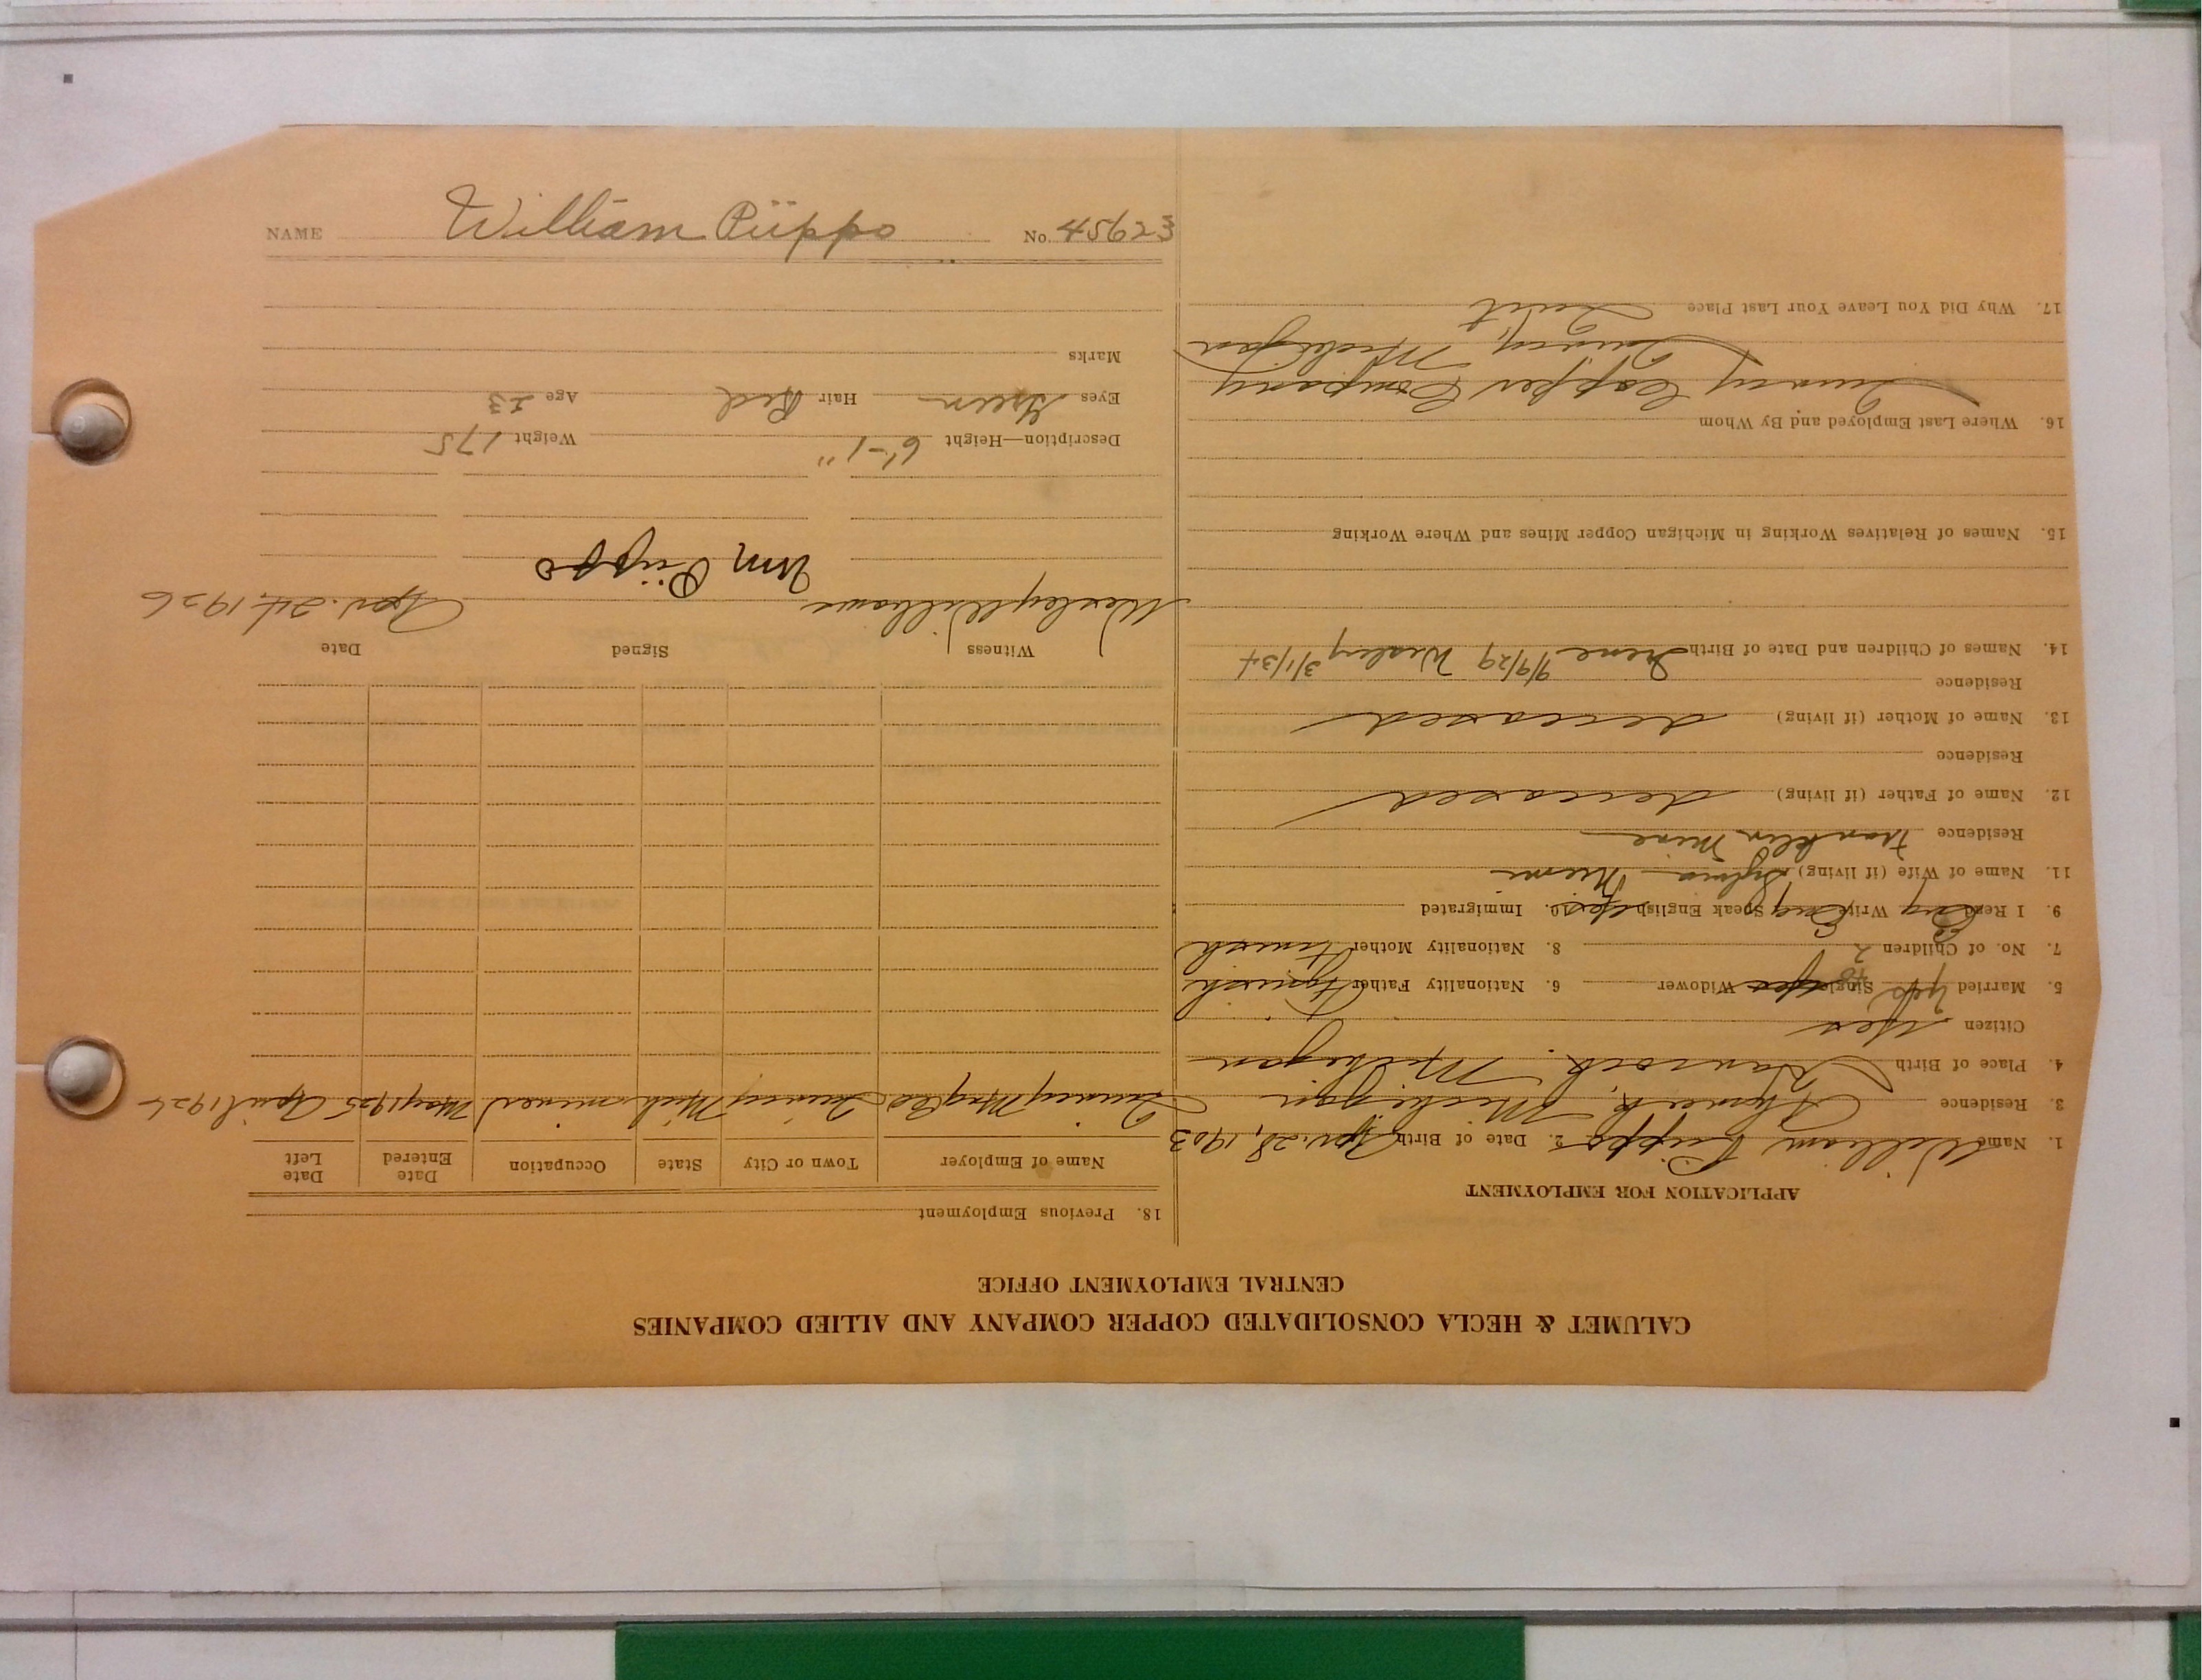 CALUMET & HECLA CONSOLIDATED COPPER COMPANY AND ALLIED COMPANIES
CENTRAL EMPLOYMENT OFFICE
APPLICATION FOR EMPLOYMENT
1. Name William Piippo 2. Date of Birth Apr. 28, 1903
3. Residence Michigan
4. Place of Birth Hancock, Michigan
Citizen Yes
5. Married yes Single Widower 6. Nationality Father Finnish
7. No. of Children 2 8. Nationality Mother Finnish
9. I Read Eng Write Eng Speak English yes 10. Immigrated
11. Name of Wife (if living) Sylvia Niemi
Residence Franklin Mine
12. Name of Father (if living) deceased
Residence
13. Name of Mother (if living) deceased
Residence
14. Names of Children and Date of Birth Irene 9/9/29 Wesley 3/1/34
15. Names of Relatives Working in Michigan Copper Mines and Where Working
16. Where Last Employed and By Whom
Quincy Copper Company
Quincy, Michigan
17. Why Did You Leave Your Last Place Quit
18. Previous Employment
Name of Employer Town or City State Occupation Date Entered Date Left
Quincy Mng Co Quincy Mich miner May 1925 April 1926
Witness Signed Date
Wesley Williams Wm Piippo Apr. 24, 1926
Description—Height 6'-1" Weight 175
Eyes Green Hair Red Age 23
Marks
NAME William Piippo No. 45623